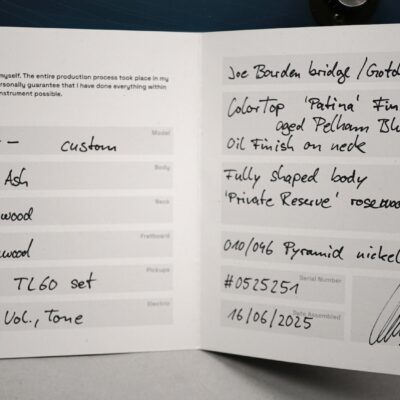 myself. The entire production process took place in my
ersonally guarantee that I have done everything within
nstrument possible.
Model
- custom
Body
Ash
Neck
wood
Fretboard
wood
Pickups
TL60 set
Electro
Vol., Tone
Joe Barden bridge / Gotoh
ColorTop 'Patina' Fin
aged Pelham Blu
Oil Finish on neck
Fully shaped body
'Private Reserve' rosewoo
010/046 Pyramid nickel
Serial Number
#0525251
Date Assembled
16/06/2025